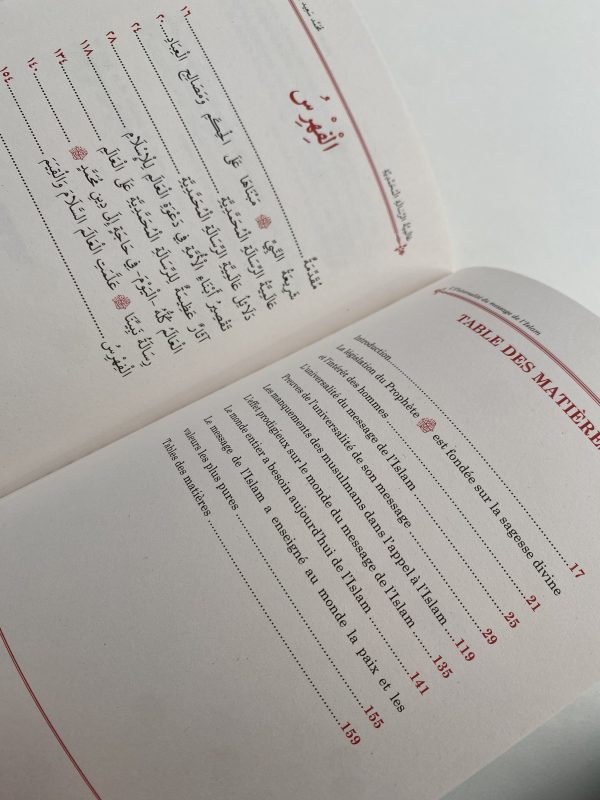 عَالَمِيَّةُ الرِّسَالَةِ الْمُحَمَّدِيَّةِ
الْفِهْرِسُ
مُقَدِّمَةٌ ١٦
شَرِيعَةُ النَّبِيِّ ﷺ مَبْنَاهَا عَلَى الْحِكَمِ وَمَصَالِحِ الْعِبَادِ ٢٠
عَالَمِيَّةُ الرِّسَالَةِ الْمُحَمَّدِيَّةِ ٢٤
دَلَائِلُ عَالَمِيَّةِ الرِّسَالَةِ الْمُحَمَّدِيَّةِ ٢٨
تَقْصِيرُ أَبْنَاءِ الْأُمَّةِ فِي دَعْوَةِ الْعَالَمِ لِلْإِسْلَامِ ١١٨
آثَارٌ عَظِيمَةٌ لِلرِّسَالَةِ الْمُحَمَّدِيَّةِ عَلَى الْعَالَمِ ١٣٤
الْعَالَمُ كُلُّهُ الْيَوْمَ فِي حَاجَةٍ إِلَى دِينِ مُحَمَّدٍ ﷺ ١٤٠
رِسَالَةُ نَبِيِّنَا ﷺ عَلَّمَتِ الْعَالَمَ السَّلَامَ وَالْقِيَمَ ١٥٤
الْفِهْرِسُ
L'Universalité du message de l'Islam
TABLE DES MATIÈRE
Introduction 17
La législation du Prophète ﷺ est fondée sur la sagesse divine
et l'intérêt des hommes 21
L'universalité du message de l'Islam 25
Preuves de l'universalité de son message 29
Les manquements des musulmans dans l'appel à l'Islam 119
L'effet prodigieux sur le monde du message de l'Islam 135
Le monde entier a besoin aujourd'hui de l'Islam 141
Le message de l'Islam a enseigné au monde la paix et les
valeurs les plus pures 155
Tables des matières 159